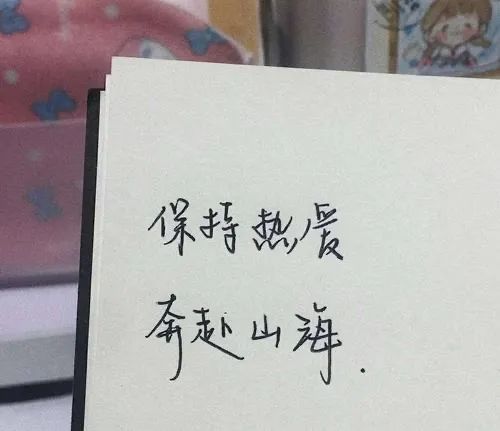 保持热爱
奔赴山海.